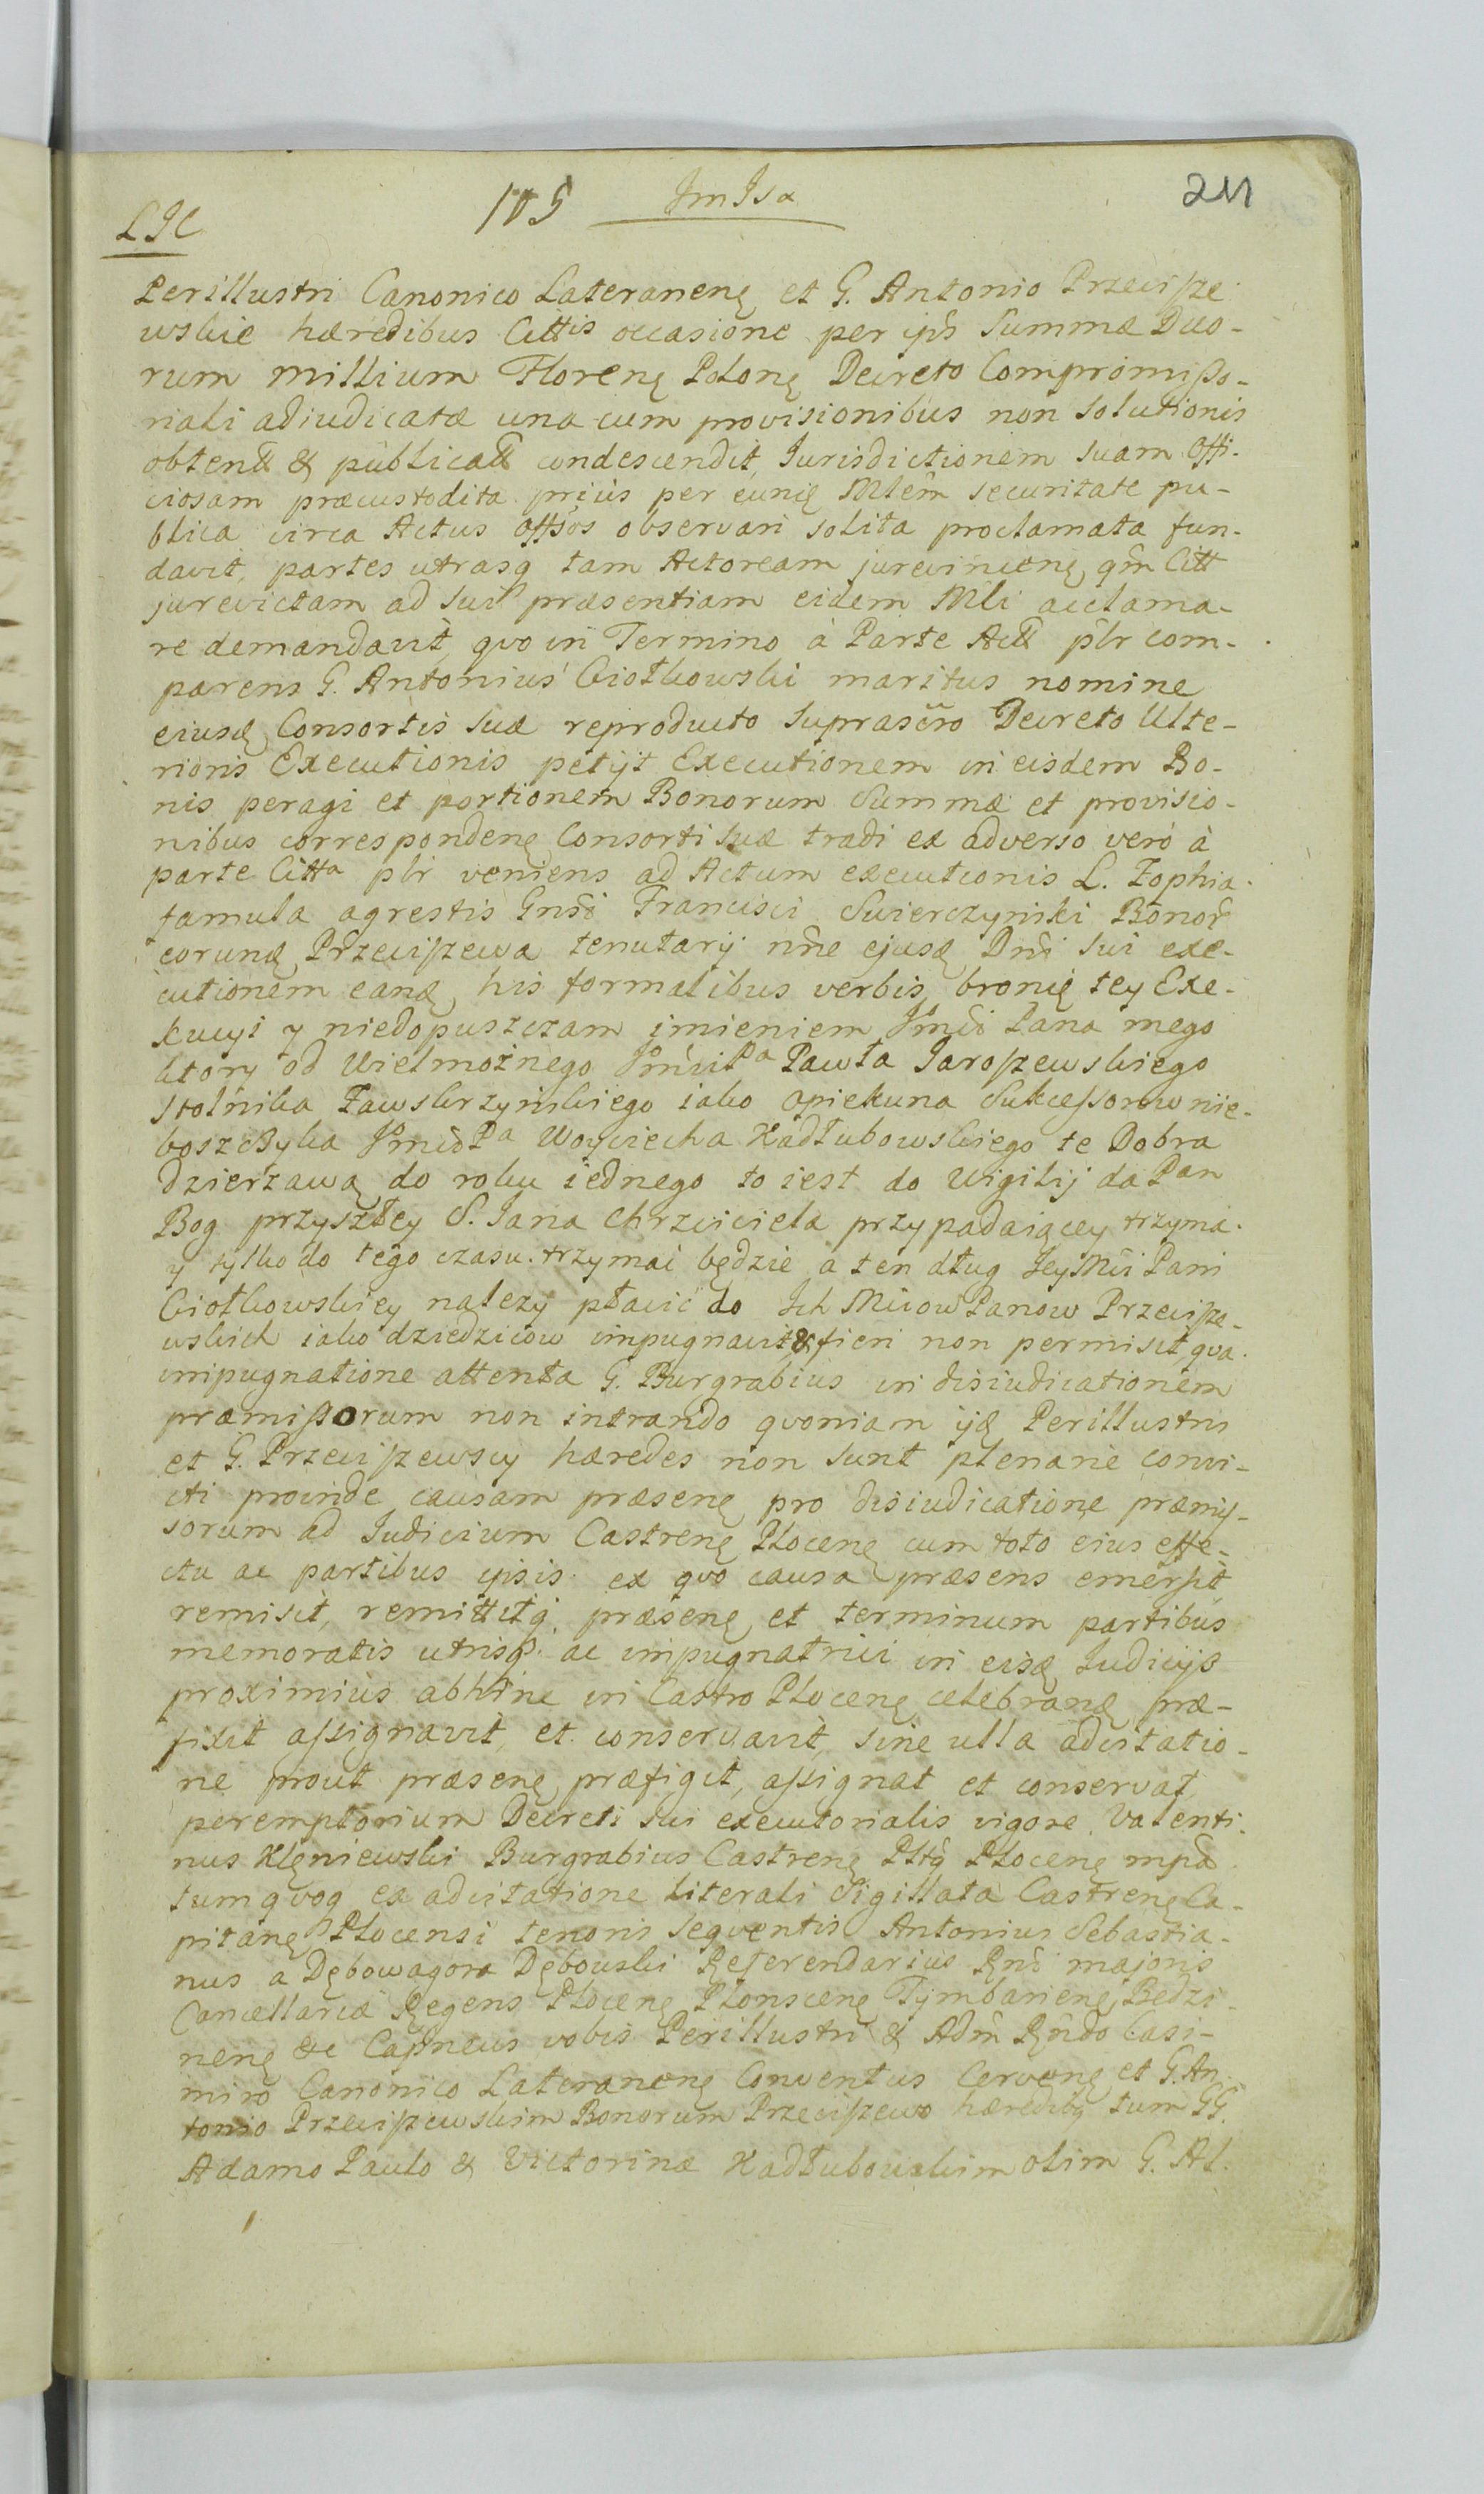 LJC 105 JmJsa 211
Perillustri Canonico Lateranenę et G. Antonio Przecisze
wskie hæredibus Cittis occasione per ips Summæ Duo-
rum millium Florenę Polonę Decreto Compromisso-
riali adiudicatæ una cum provisionibus non solutionis
obtentt & publicatt condescendit, Iurisdictionem suam Offi-
ciosam præcustodita prius per eunę Mlem securitate pu-
blica circa Actus offsos observari solita proclamata fun-
davit, partes utrasq tam Actoream jurevincenę qm Citt
jurevictam ad sui præsentiam eidem Mli acclama-
re demandavit, qvo in Termino à Parte Actt plr com-
parens G. Antonius Ciołkowski maritus nomine
eiusę Consortis suæ reproducto suprascro Decreto Ulte-
rioris Executionis petijt Executionem in eisdem Bo-
nis peragi et portionem Bonorum Summæ et provisio-
nibus correspondenę Consorti suæ tradi ex adverso vero à
parte Citta plr veniens ad Actum executionis L. Zophia
famula agrestis Gnsi Francisci Swierczynski Bonor
eorunę Przeciszewa tenutarij nne ejusę Dni sui exe-
cutionem eanę, his formalibus verbis, bronię tey Exe-
kucyi y niedopuszczam imieniem Jmci Pana mego
ktory od Wielmożnego Jmci Pa Pawła Jaroszewskiego
Stolnika Zawskrzyńskiego iako Opiekuna Sukcessorow nie-
boszczyka Jmci Pa Woyciecha Kadłubowskiego te Dobra
dzierżawą do roku iednego to iest do Wigilij da Pan
Bog przyszłey S. Jana Chrzciciela przypadaiącey trzyma
y tylko do tego czasu trzymać będzie a ten dług Jey Mci Pani
Ciołkowskiey nalezy płacić do Ich Mciow Panow Przecisze-
wskich iako dziedzicow impugnavit & fieri non permisit qva
impugnatione attenta G. Burgrabius in disiudicationem
præmissorum non intrando qvoniam ijdę Perillustris
et G. Przeciszewscy hæredes non sunt plenarie convi-
cti proinde causam præsenę pro disiudicatione præmis-
sorum ad Iudicium Castrenę Plocenę cum toto eius effe-
ctu ac partibus ipsis ex qvo causa præsens emersit
remisit, remittitq præsenę et terminum partibus
memoratis utrisq ac impugnatrici in eisę Iudicijs
proximius abhinc in Castro Plocenę celebranę præ-
fixit assignavit, et conservavit, sine ulla adcitatio-
ne prout præsenę præfigit, assignat et conservat
peremptorium Decreti sui executorialis vigore Valenti-
nus Klęniewski Burgrabius Castrenę Pltq Plocenę mpa
tum qvoq ex adcitatione literali Sigillata Castrenę Ca-
pitanę Plocensi tenoris seqventis Antonius Sebastia-
nus a Dębowagora Dębowski Referendarius Rni majoris
Cancellariæ Regens Plocenę Plonscenę Tymbarienę Bedzi-
nenę &c Capneus vobis Perillustri & Adm Rndo Casi-
miro Canonico Lateranenę Conventus Cervenę et G. An-
tonio Przeciszewskim Bonorum Przeciszewo hæredibq tum GG.
Adamo Paulo & Victorinæ Kadłubowskim olim G. Al.